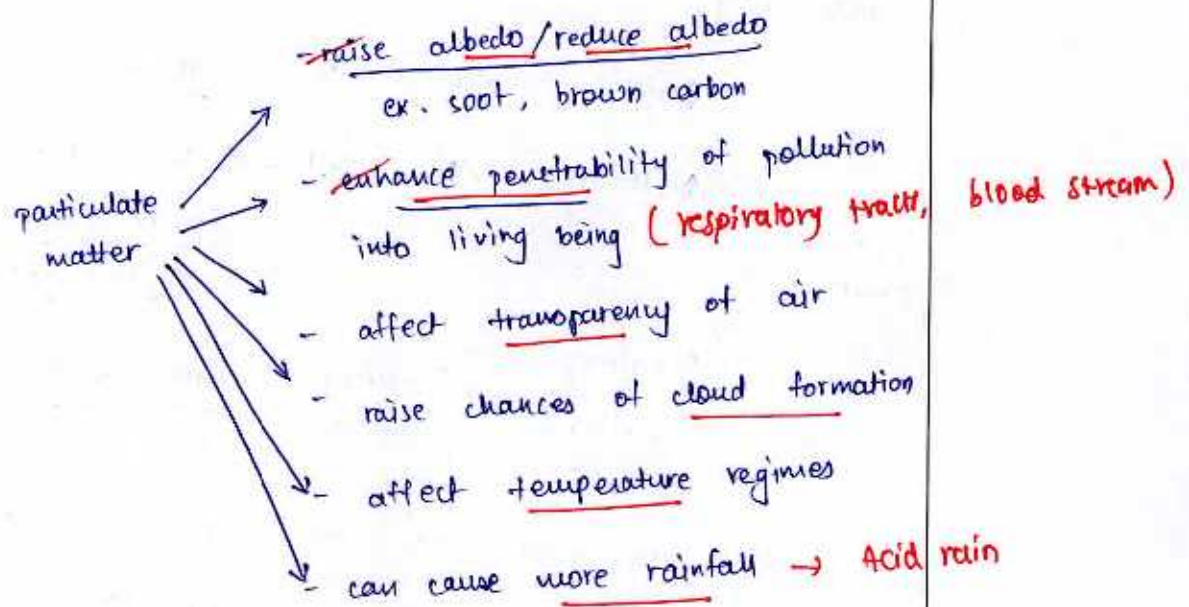 - raise albedo/reduce albedo
ex. soot, brown carbon
- enhance penetrability of pollution
into living being (respiratory tract, blood stream)
particulate
matter
- affect transparency of air
- raise chances of cloud formation
- affect temperature regimes
- can cause more rainfall → Acid rain